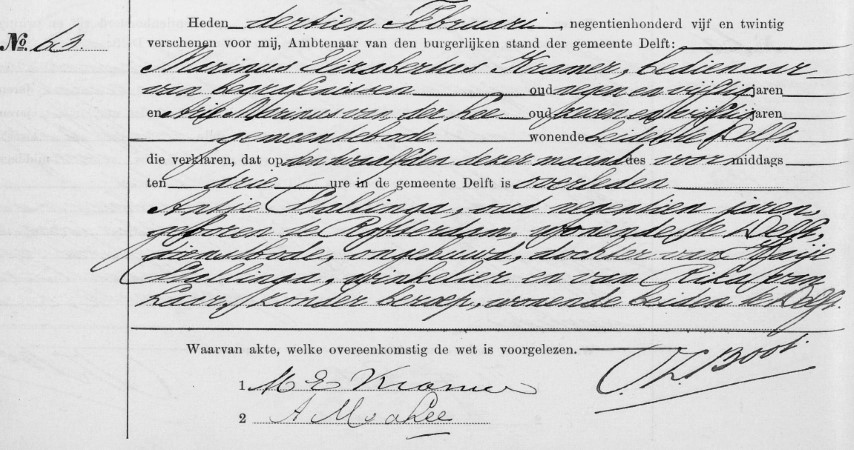 Heden dertien Februari, negentienhonderd vijf en twintig
No. 63. verschenen voor mij, Ambtenaar van den burgerlijken stand der gemeente Delft:
Marinus Elizabertus Kramer, bedienaar
van begrafenissen oud negen en vijftig jaren
en Arij Marinus van der Lee oud zeven en vijftig jaren
gemeentebode wonende beiden te Delft
die verklaren, dat op den twaalfden dezer maand des voor middags
ten drie ure in de gemeente Delft is overleden
Antje Stallinga, oud negentien jaren,
geboren te Rotterdam, wonende te Delft,
dienstbode, ongehuwd, dochter van Haije
Stallinga, winkelier en van Rika van
Laar, zonder beroep, wonende beiden te Delft.
Waarvan akte, welke overeenkomstig de wet is voorgelezen.
1 M E Kramer
2 A M v d Lee
Boot